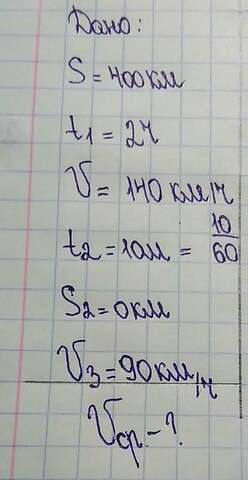 Дано:
S = 400 км
t1 = 2ч
V = 140 км/ч
t2 = 10м = 10/60
S2 = 0 км
V3 = 90 км/ч
Vср - ?